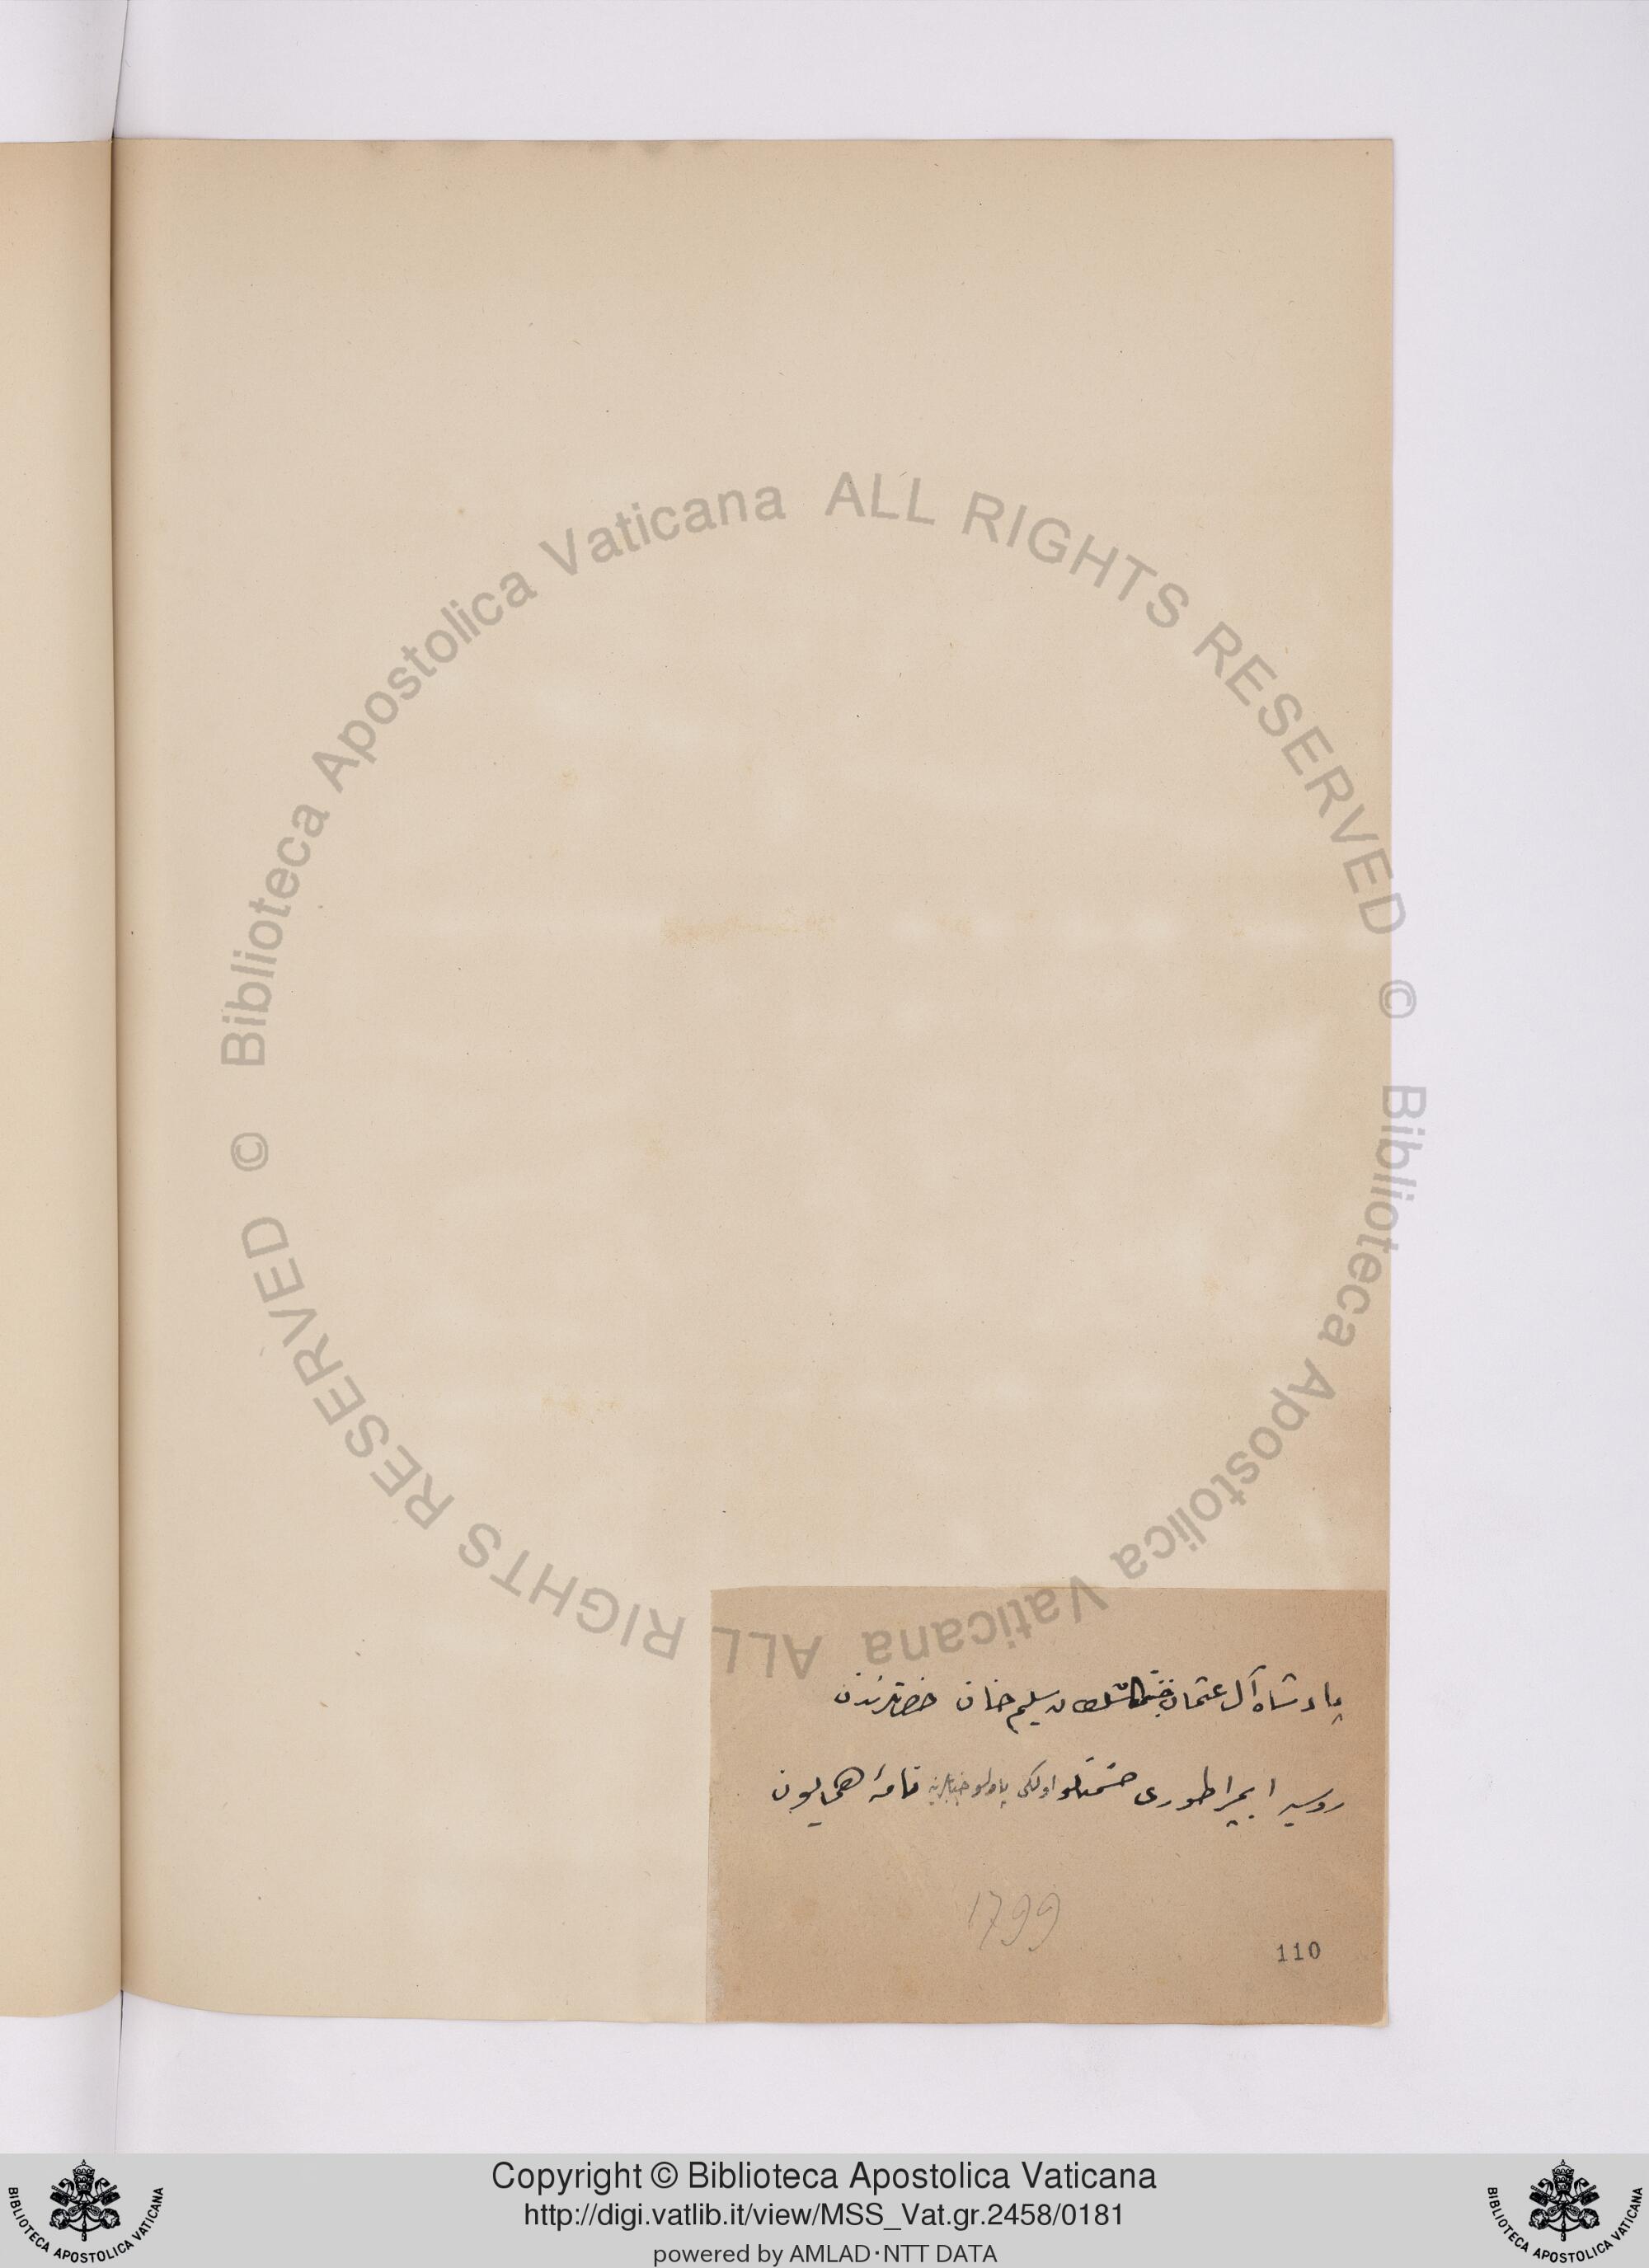 © Biblioteca Apostolica Vaticana ALL RIGHTS RESERVED © Biblioteca Apostolica Vaticana ALL RIGHTS RESERVED
پادشاه آل عثمان سليم خان حضرتلرندن
روسيه ايمپراطورى حشمتلو اولكى پاولو جنابلرينه نامۀ همايون
1799
110
Copyright © Biblioteca Apostolica Vaticana
http://digi.vatlib.it/view/MSS_Vat.gr.2458/0181
powered by AMLAD·NTT DATA
BIBLIOTECA APOSTOLICA VATICANA
BIBLIOTECA APOSTOLICA VATICANA